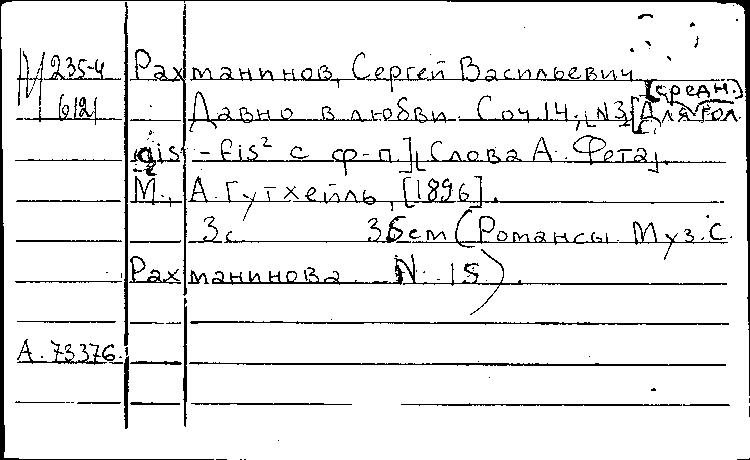 М 235-4 Рахманинов, Сергей Васильевич
612 Давно в любви. Соч. 14, [N3] [Для [средн.] гол.
gis - fis² с ф-п.] [Слова А. Фета].
М., А. Гутхейль, [1896].
3с 35см (Романсы Муз. С.
Рахманинова N 15).
А. 73376.